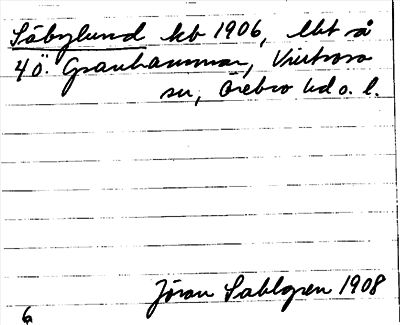 Säbylund kb 1906, lht å
4 Ö. Granhammar, Vintrosa
sn, Örebro hd o. l.
Jöran Sahlgren 1908
6